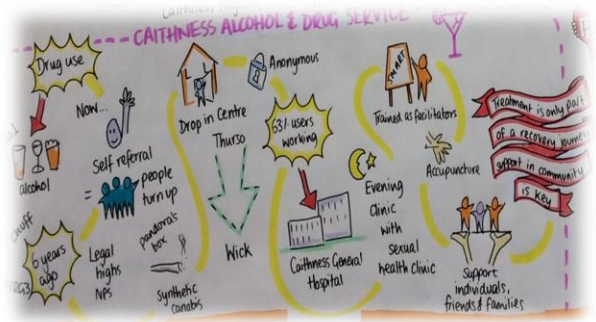 CAITHNESS ALCOHOL & DRUG SERVICE
Drug use
alcohol
chuff
6 years
ago
Now...
Self referral
=
people
turn up
Legal
highs
NPS
pandora's
box
Synthetic
canabis
Drop in Centre
Thurso
Wick
Anonymous
63% users
working
Caithness General
Hospital
Evening
Clinic
with
sexual
health clinic
SMART
Trained as facilitators
Accupuncture
Support
individuals,
friends & families
Treatment is only part
of a recovery journey
support in community
is key